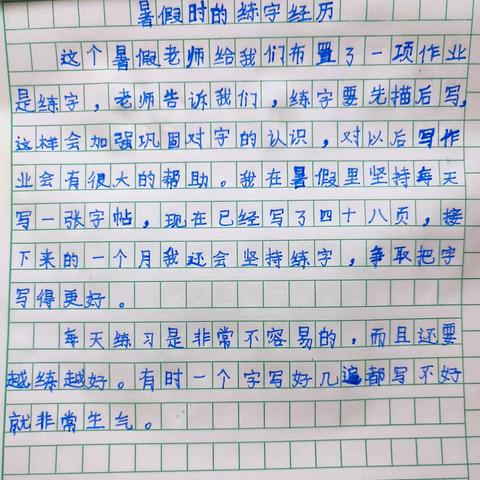 暑假时的练字经历
这个暑假老师给我们布置了一项作业
是练字，老师告诉我们，练字要先描后写，
这样会加强巩固对字的认识，对以后写作
业会有很大的帮助。我在暑假里坚持每天
写一张字帖，现在已经写了四十八页，接
下来的一个月我还会坚持练字，争取把字
写得更好。
每天练习是非常不容易的，而且还要
越练越好。有时一个字写好几遍都写不好
就非常生气。